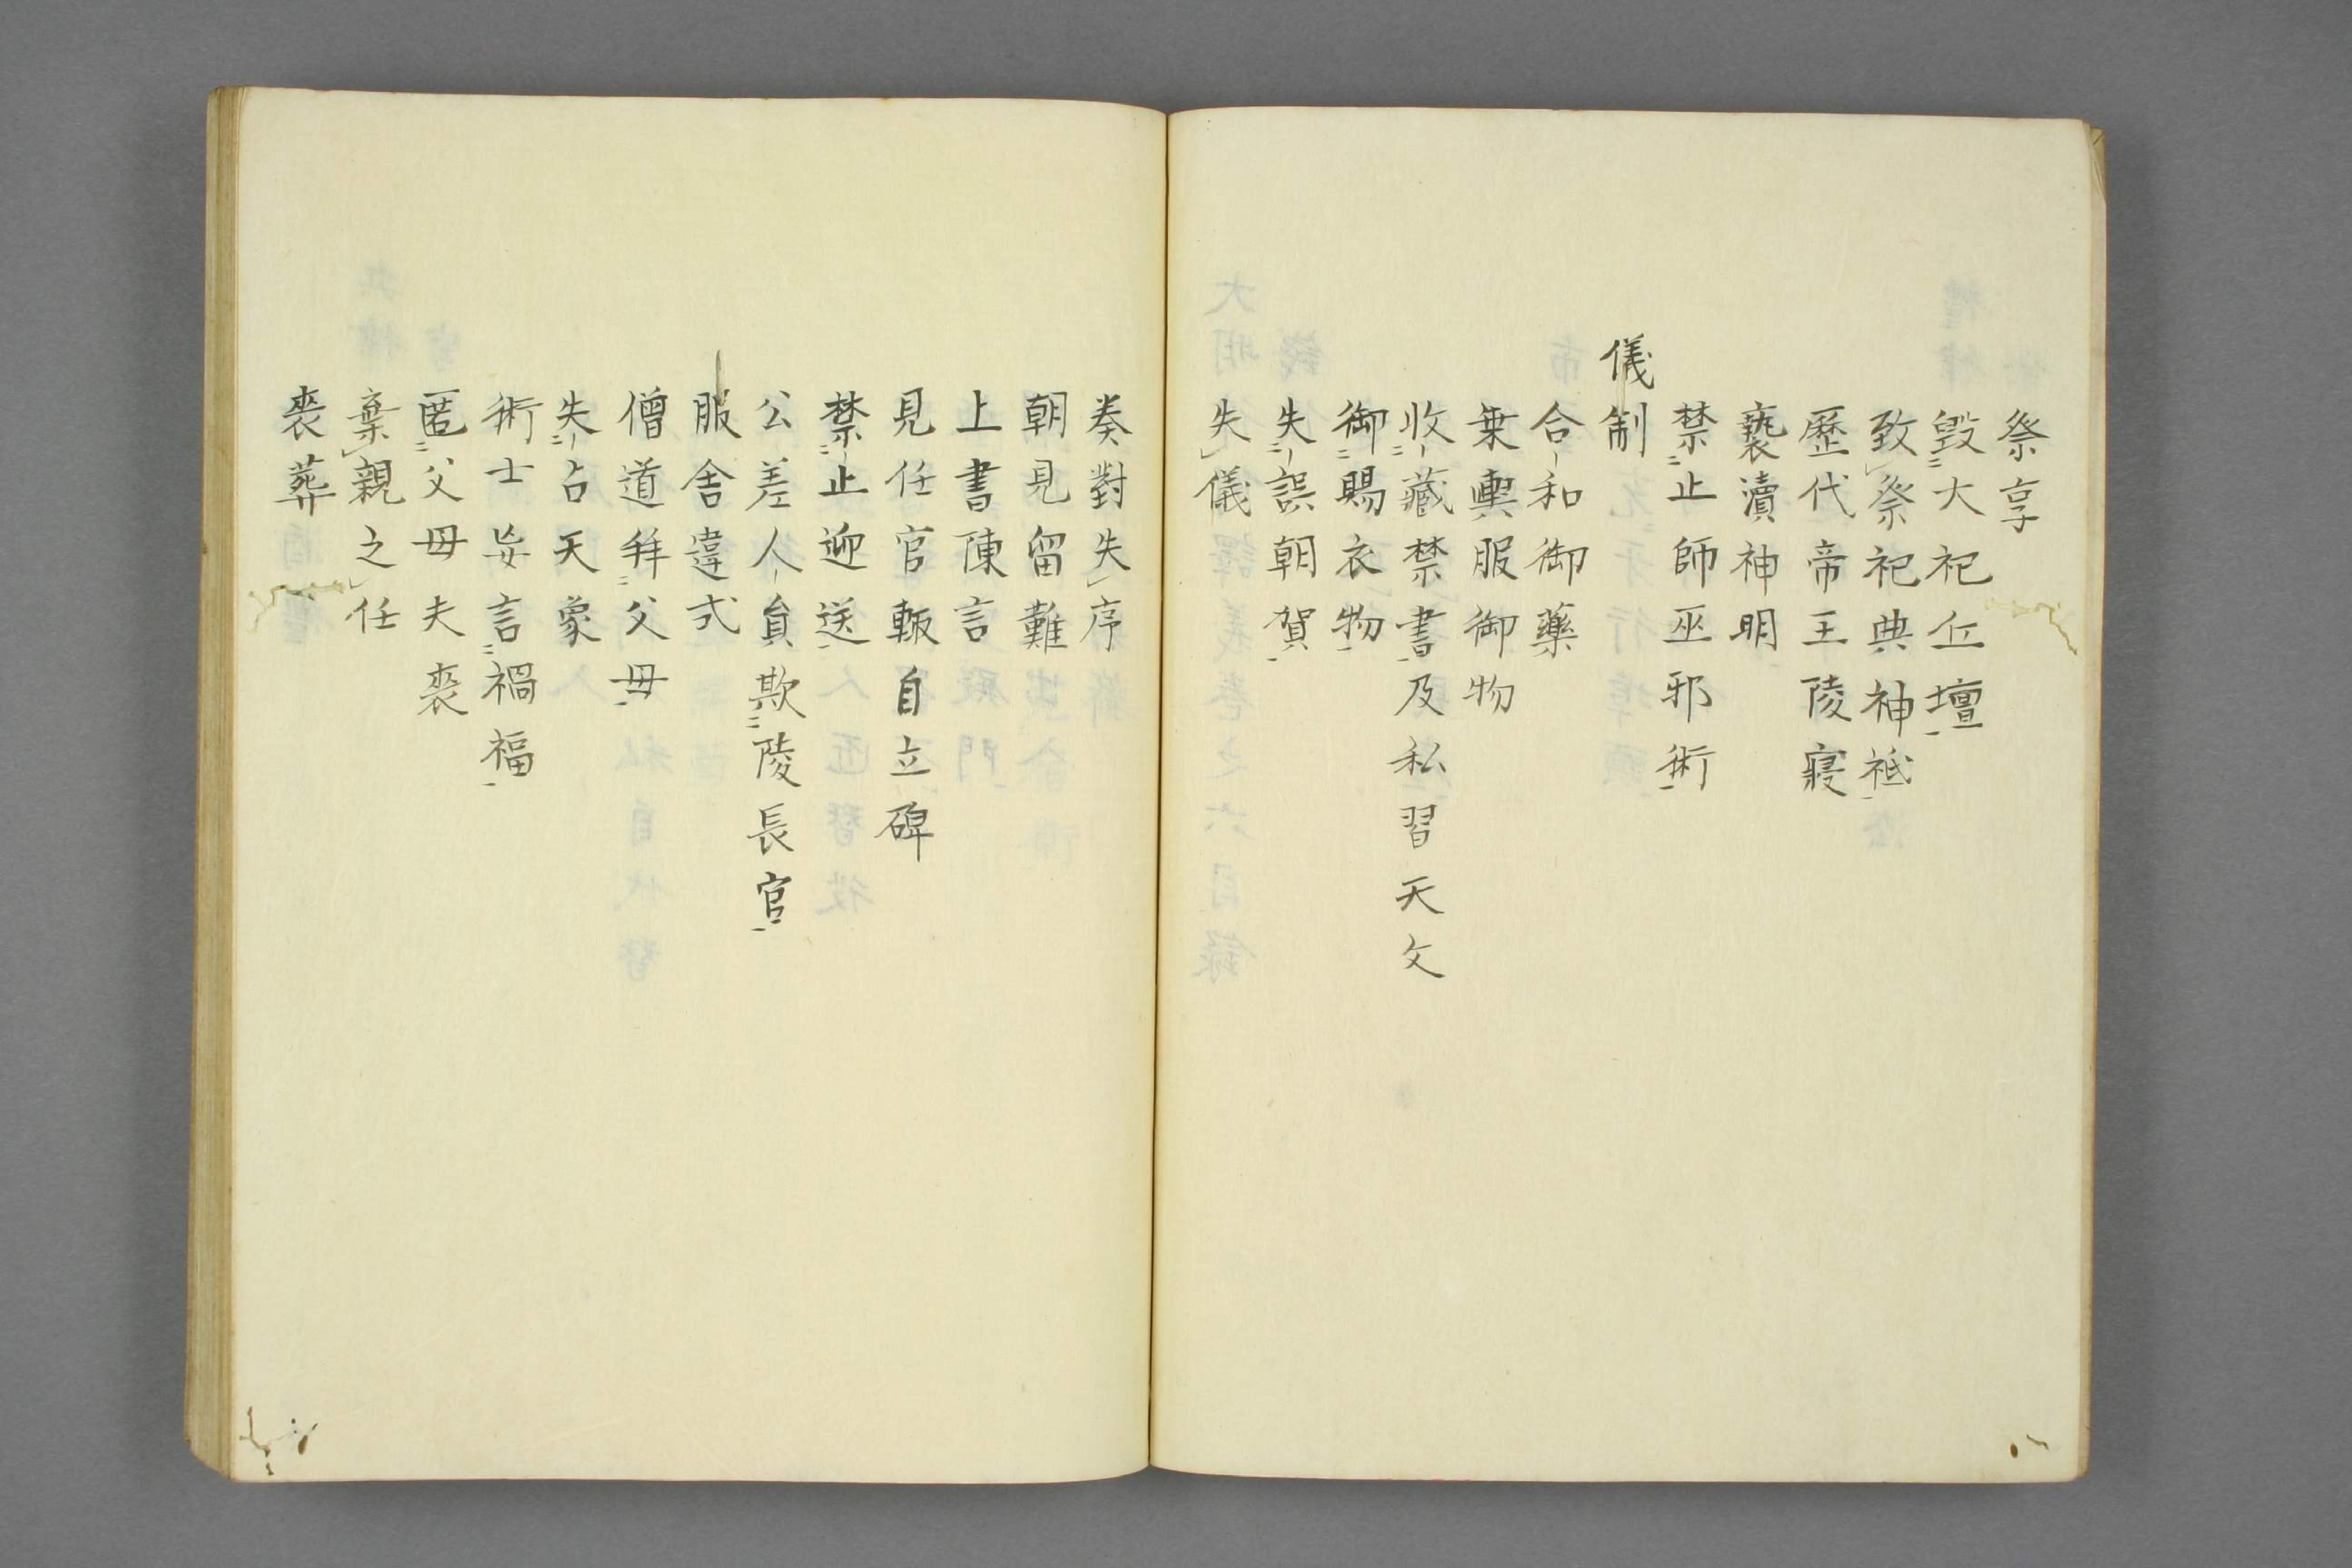 祭享
毀大祀丘壇
致祭祀典神祗
歷代帝王陵寢
褻瀆神明
禁止師巫邪術
儀制
合和御藥
乗輿服御物
收藏禁書及私習天文
御賜衣物
失誤朝賀
失儀
奏對失序
朝見留難
上書陳言
見任官輙自立碑
禁止迎送
公差人員欺陵長官
服舎違式
僧道拜父母
失占天象
術士妄言禍福
匿父母夫喪
棄親之任
喪葬